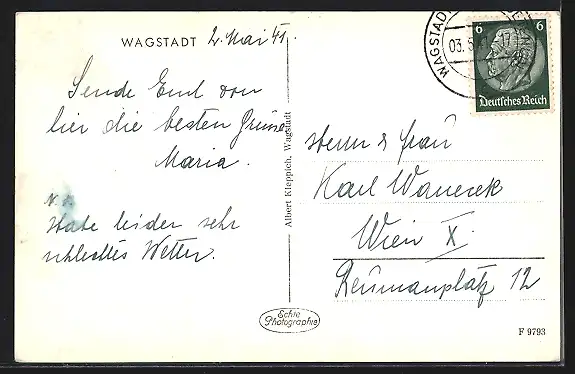 WAGSTADT 2. Mai 41.
Sende Euch von
hier die besten Grüsse
Maria.
N.S.
Habe leider sehr
schlechtes Wetter.
Albert Kleppich, Wagstadt
Echte
Photographie
WAGSTADT
03.5.41-17
6 6
Deutsches Reich
Herrn & Frau
Karl Wanecek
Wien X.
Reumannplatz 12
F 9793